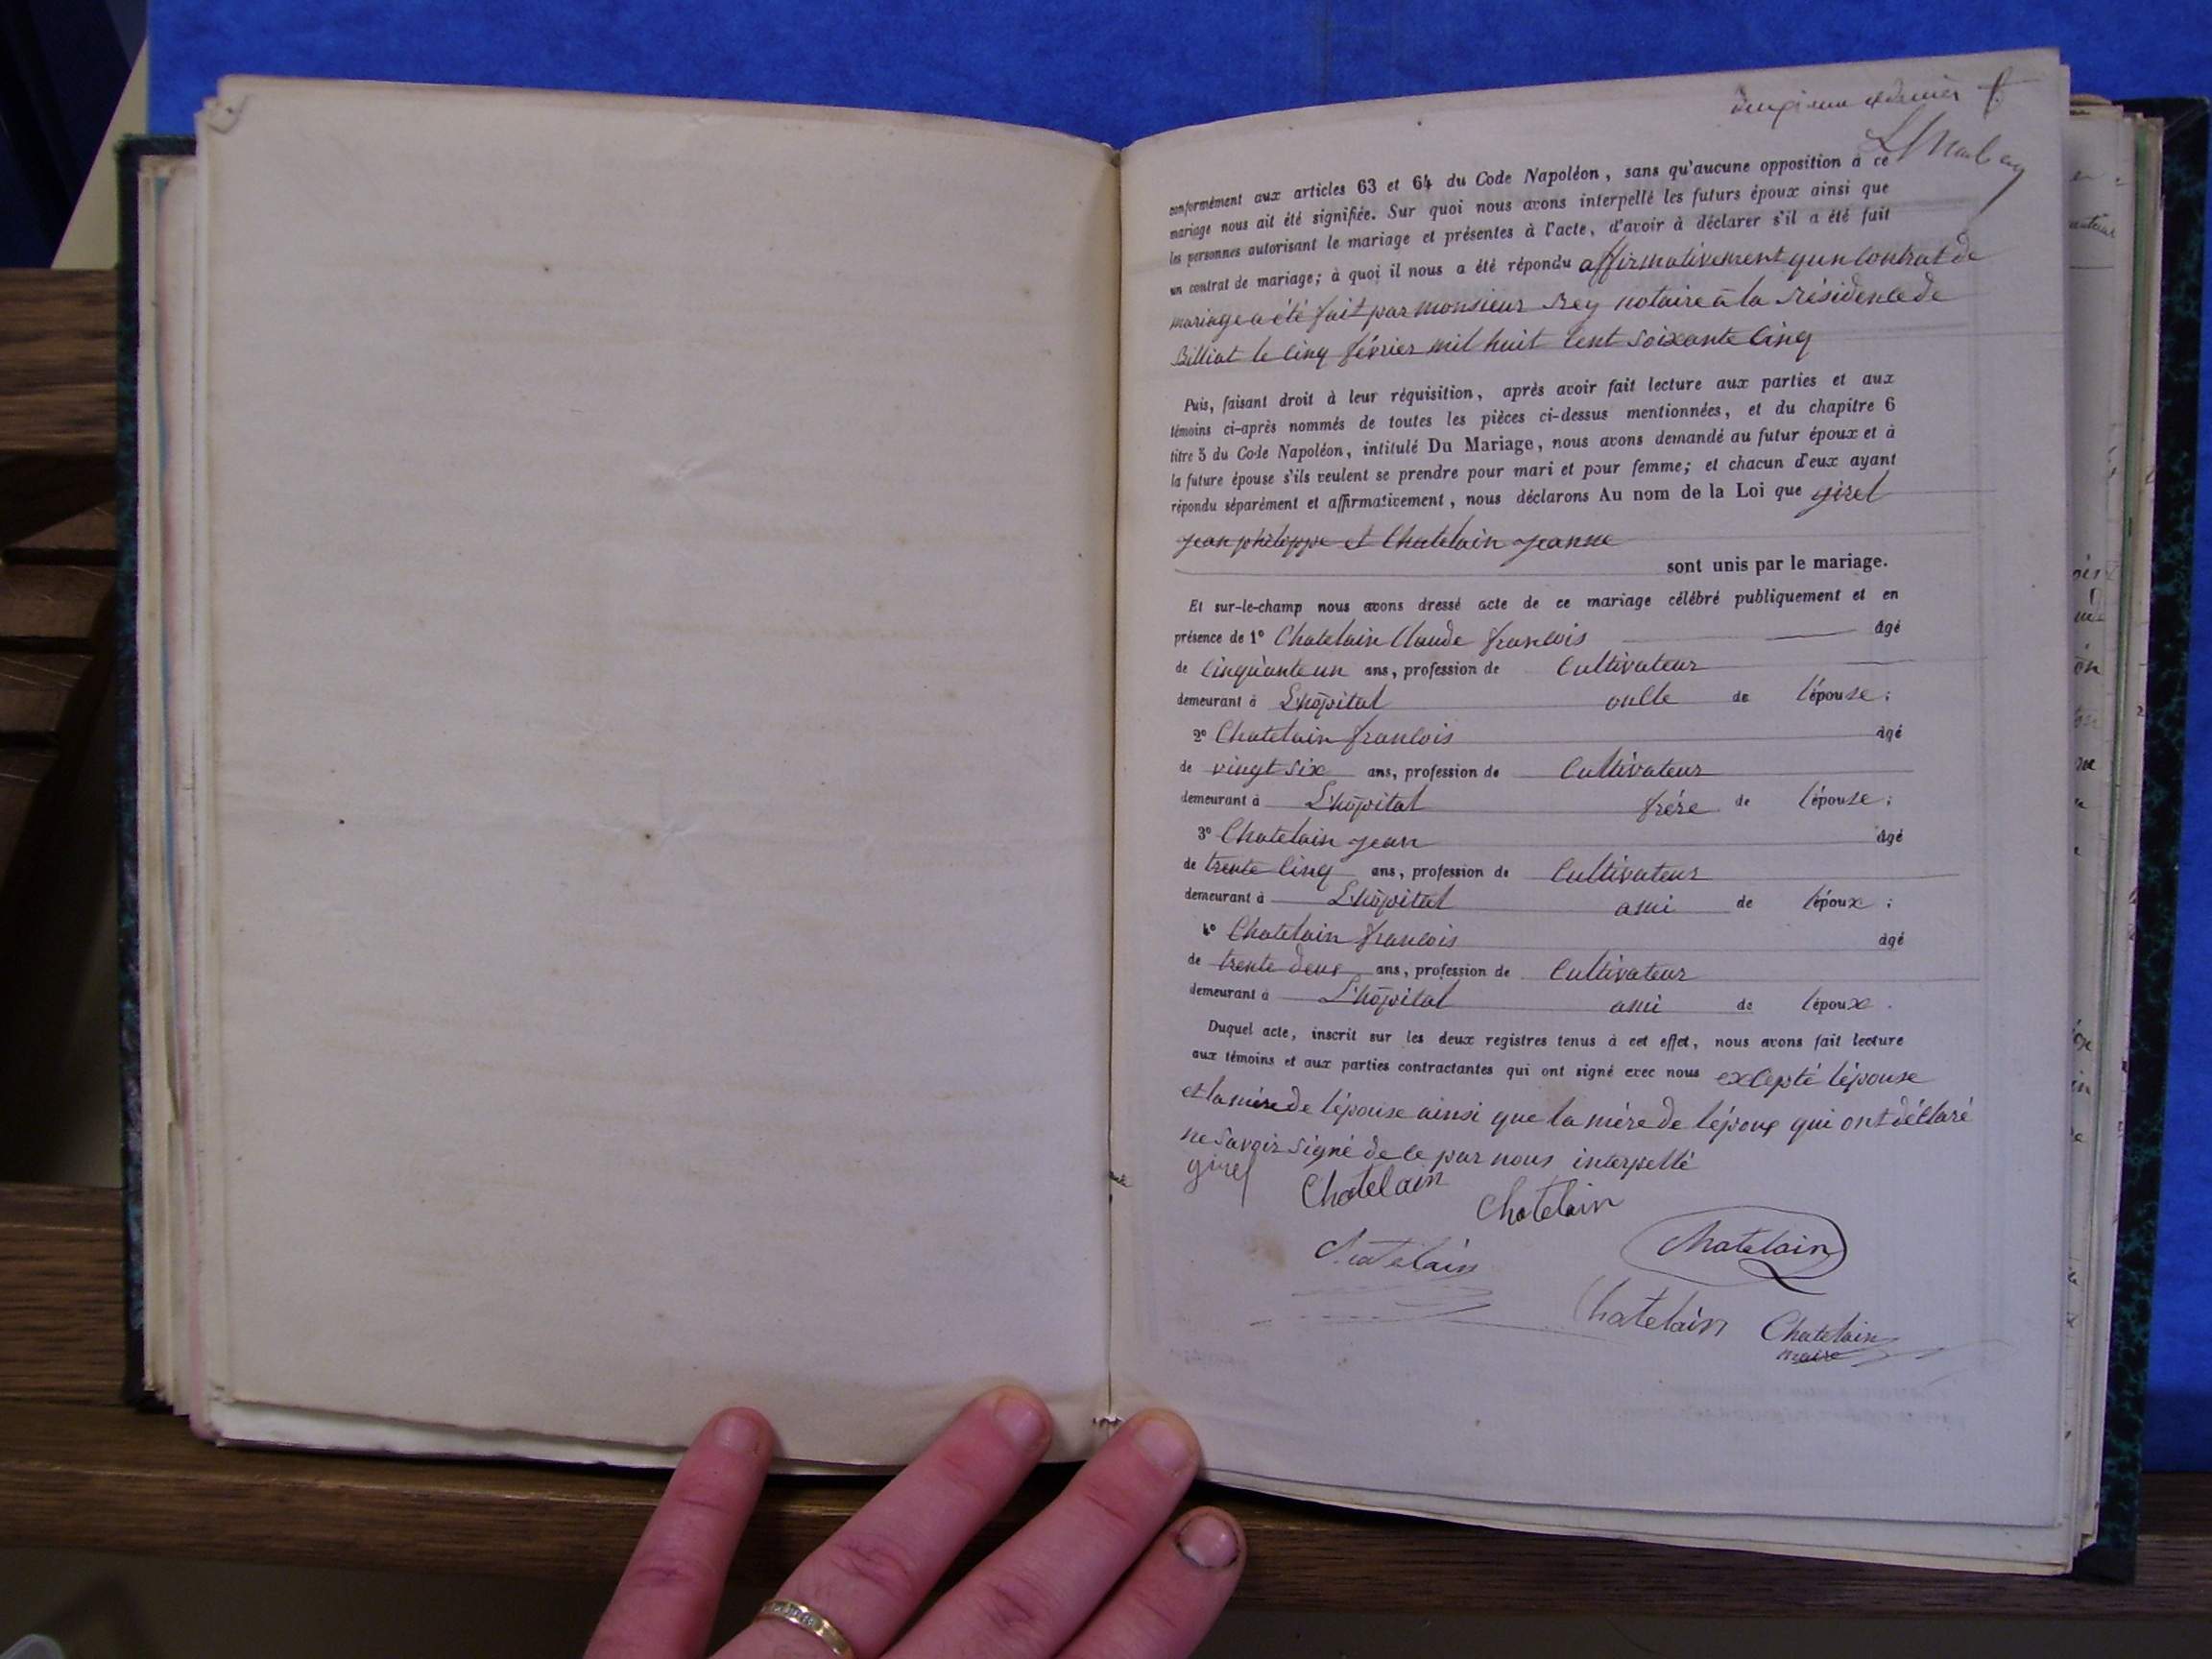 et dernier
conformément aux articles 63 et 64 du Code Napoléon, sans qu'aucune opposition à ce
mariage nous ait été signifiée. Sur quoi nous avons interpellé les futurs époux ainsi que
les personnes autorisant le mariage et présentes à l'acte, d'avoir à déclarer s'il a été fait
un contrat de mariage; à quoi il nous a été répondu affirmativement qu'un Contrat de
mariage a été fait par monsieur Rey notaire à la Résidence de
Billiat le cinq février mil huit cent soixante cinq
Puis, faisant droit à leur réquisition, après avoir fait lecture aux parties et aux
témoins ci-après nommés de toutes les pièces ci-dessus mentionnées, et du chapitre 6
titre 5 du Code Napoléon, intitulé Du Mariage, nous avons demandé au futur époux et à
la future épouse s'ils veulent se prendre pour mari et pour femme; et chacun d'eux ayant
répondu séparément et affirmativement, nous déclarons Au nom de la Loi que girel
jean philippe et Chatelain jeanne
sont unis par le mariage.
Et sur-le-champ nous avons dressé acte de ce mariage célébré publiquement et en
présence de 1° Chatelain Claude francois âgé
de Cinquante un ans, profession de Cultivateur
demeurant à L'hôpital oncle de l'épouse;
2° Chatelain francois âgé
de vingt six ans, profession de Cultivateur
demeurant à L'hôpital frére de l'épouse;
3° Chatelain jean âgé
de trente Cinq ans, profession de Cultivateur
demeurant à L'hôpital ami de l'époux;
4° Chatelain francois âgé
de trente deux ans, profession de Cultivateur
demeurant à L'hôpital ami de l'époux.
Duquel acte, inscrit sur les deux registres tenus à cet effet, nous avons fait lecture
aux témoins et aux parties contractantes qui ont signé avec nous excepté l'épouse
et la mére de l'épouse ainsi que la mére de l'époux qui ont déclaré
ne savoir signé de ce par nous interpellé
girel Chatelain Chatelain
Chatelain Chatelain
Chatelain Chatelain
maire